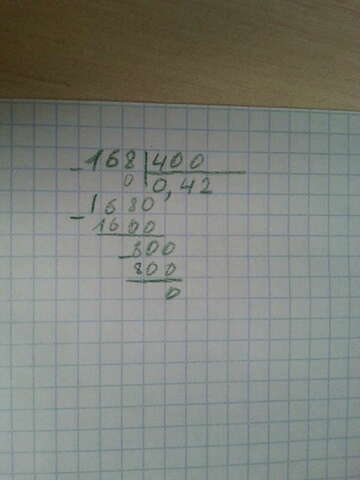 -168|400
0|0,42
-1680
1600
-800
800
0